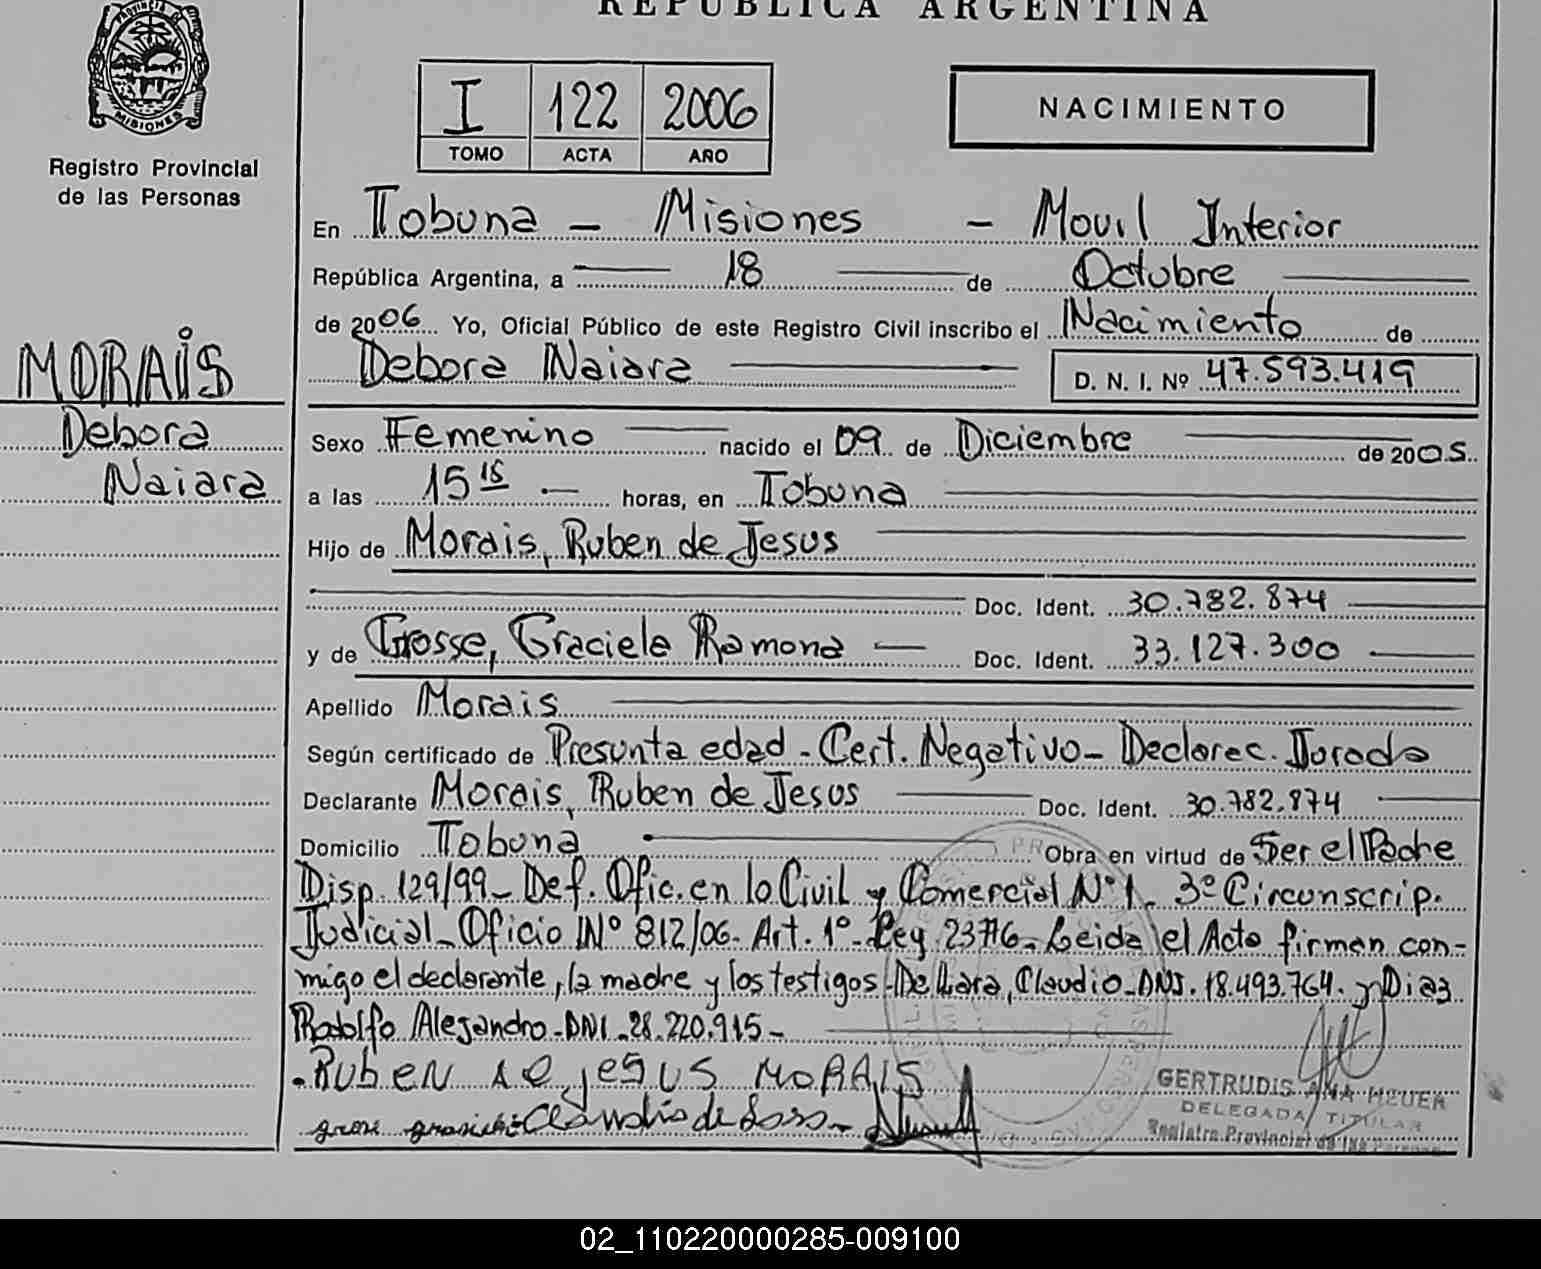 REPUBLICA ARGENTINA
PROVINCIA DE
MISIONES
Registro Provincial
de las Personas
I 122 2006
TOMO ACTA AÑO
NACIMIENTO
En Tobuna - Misiones - Movil Interior
República Argentina, a 18 de Octubre
de 2006 Yo, Oficial Público de este Registro Civil inscribo el Nacimiento de
Debora Naiara D. N. I. Nº 47.593.419
MORAIS
Debora
Naiara
Sexo Femenino nacido el 09 de Diciembre de 2005
a las 15 15 - horas, en Tobuna
Hijo de Morais, Ruben de Jesus
Doc. Ident. 30.782.874
y de Grosse, Graciela Ramona - Doc. Ident. 33.127.300
Apellido Morais
Según certificado de Presunta edad - Cert. Negativo - Declarac. Jurada
Declarante Morais, Ruben de Jesus Doc. Ident. 30.782.874
Domicilio Tobuna Obra en virtud de Ser el Padre
Disp. 129/99 - Def. Ofic. en lo Civil y Comercial Nº 1 - 3º Circunscrip.
Judicial - Oficio Nº 812/06 - Art. 1º - Ley 23776 - Leida el Acta firman con-
migo el declarante, la madre y los testigos - De Lara, Claudio - DNI. 18.493.764. y Diaz
Rodolfo Alejandro - DNI - 28.220.915 -
Ruben de jesus MORAIS
GERTRUDIS ANA HEUER
DELEGADA TITULAR
Registro Provincial de las Personas
02_110220000285-009100